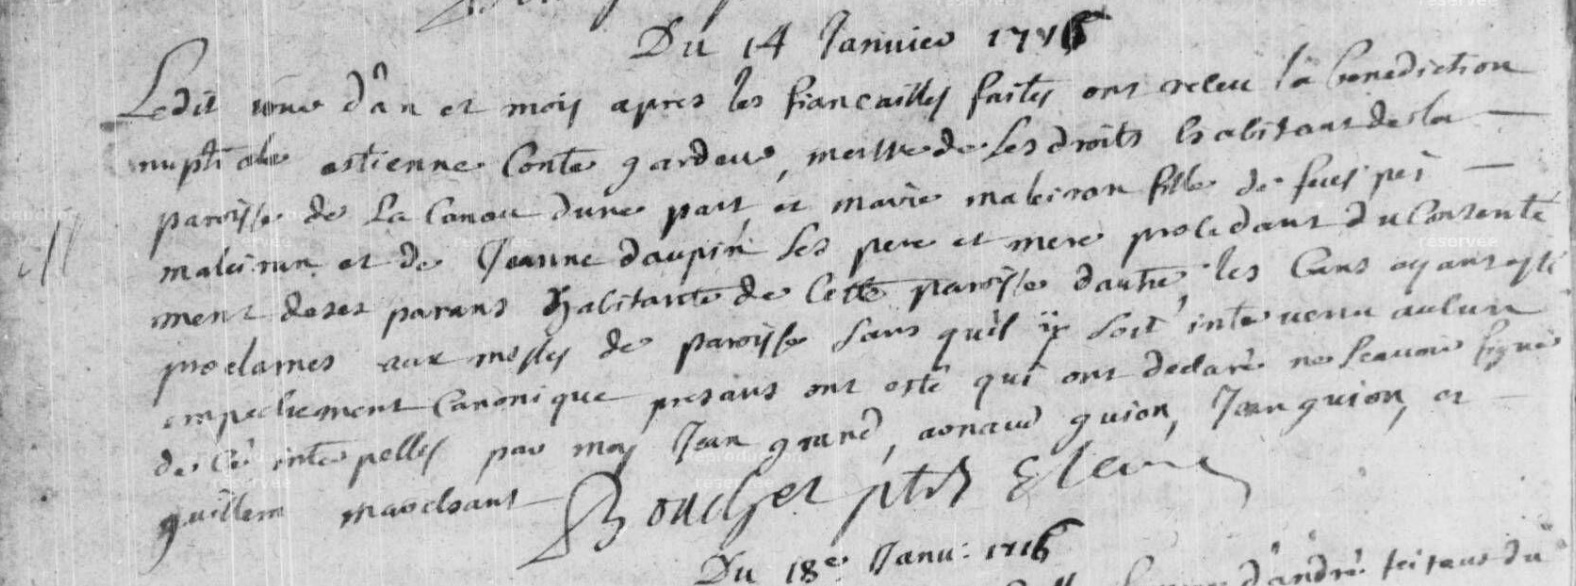 Du 14 Janvier 1716
Ledit jour d'an et mois apres les fiancailles faites ont receu la benediction
nuptiale estienne Conte gardeur, mestre de ses droits habitant de la
paroisse de La Canou dune part et marie maleiran fille de feus pei
maleiran et de Jeanne daupin ses pere et mere procedant du Consente
ment de ses parans habitante de Cette paroisse dautre, les bans ayans esté
proclames aux messes de paroisse sans quil ÿ soit intervenu aulcun
empechement Canonique presans ont esté qui ont declaré ne scavoir signer
de Ce interpelles par moy Jean grand, arnaud guion, Jean guion, et
guillem marchant Bouchet ptre
Du 18e Janv: 1716
d'andré du